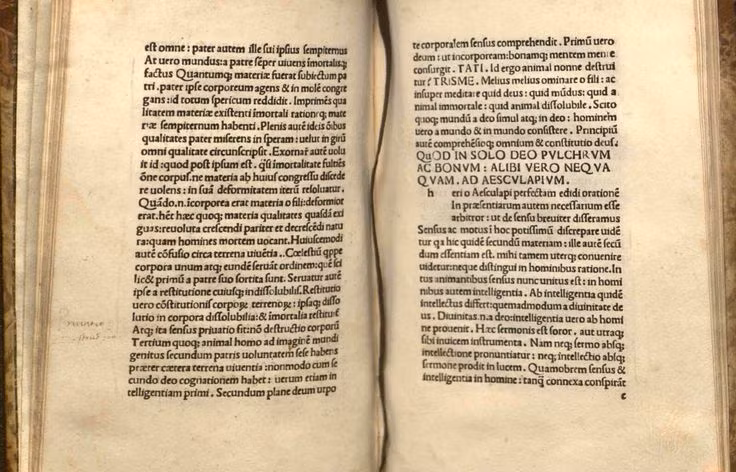 est omne : pater autem ille sui ipsius sempiternus
At uero mundus: a patre sēper uiuens īmortalisq;
factus Quantumq; materiæ fuerat subiectum pa
tri . pater ipse corporeum agens & in molē congre
gans : id totum spericum reddidit . Imprimēs qua
litatem materiæ existenti īmortali rationq; mate
riæ sempiternum habenti . Plenis autē ideis ōibus
qualitates pater miserens in speram : uelut in girū
omni qualitate circunscripsit . Exornar̄ autē uolu
it id : quod post ipsum est . q̄si īmortalitate fultiēs
ōne corpus .ne materia ab huius congressu discede
re uolens : in suā deformitatem iterū resoluatur .
Quādo.n.īcorporea erat materia o fili : deformior
erat . hēt hæc quoq; materia qualitates quasdā exi
guas : reuoluta crescendi pariter et decrescēdi natu
ra : quam homines mortem uocant . Huiuscemodi
autē cōfusio circa terrena uiuētia . . Cœlestiū q̄ppe
corpora unum atq; eundē seruāt ordinem : quē sci
lic& primū a patre suo sortita sunt . Seruatur autē
ipse a restitutione cuiusq; indissolubilis . Restitutio
uero cōstitutionis corpoꝝ terrenoꝝ : ipsaq; disso
lutio in corpora dissolubilia : & īmortalia restituit
Atq; ita sensus priuatio fit : nō destructio corporū
Tertium quoq; animal homo ad imaginē mundi
genitus secundum patris uoluntatem sese habens
præter cætera terrena uiuentia : nonmodo cum se
cundo deo cognationem habet : uerum etiam in
telligentiam primi . Secundum plane deum utpo
te corporalem sensus comprehendit . Primū uero
deum : ut incorporeum : bonamq; mentem mente
consurgit . TATI . Id ergo animal nonne destrui
tur? TRISME . Melius melius ominare o fili : ac
insuper meditare quid deus : quid mūdus : quid a
nimal immortale : quid animal dissolubile . Scito
quoq; mundū a deo simul atq; in deo : hominem
uero a mundo & in mundo consistere . Principiū
autē comprehēsioq; omnium & constitutio deus .
QuOD IN SOLO DEO PVLCHRVM
AC BONVM : ALIBI VERO NEQVA
QVAM . AD AESCVLAPIVM .
h eri o Aesculapi perfectam edidi orationē
In præsentiarum autem necessarium esse
arbitror : ut de sensu breuiter disseramus
Sensus ac motus : hoc potissimū discrepare uidē
tur q̄ hic quidē secundū materiam : ille autē secū
dum essentiam est . mihi tamem uterq; conuenire
uidetur : neque distingui in hominibus ratione . In
tus animantibus sensus nunc unitus est : in homi
nibus autem intelligentia . Ab intelligentia quidē
intellectus differt : quemadmodum a diuinitate de
us . Diuinitas .n.a deo : intelligentia uero ab homi
ne prouenit . Hæc sermonis est soror . aut utraq;
sibi inuicem instrumenta . Nam neq; sermo absq;
intellectione pronuntiatur : neq; intellectio absq;
sermone prodit in lucem . Quamobrem sensus &
intelligentia in homine : tanq̄ connexa conspirāt
c